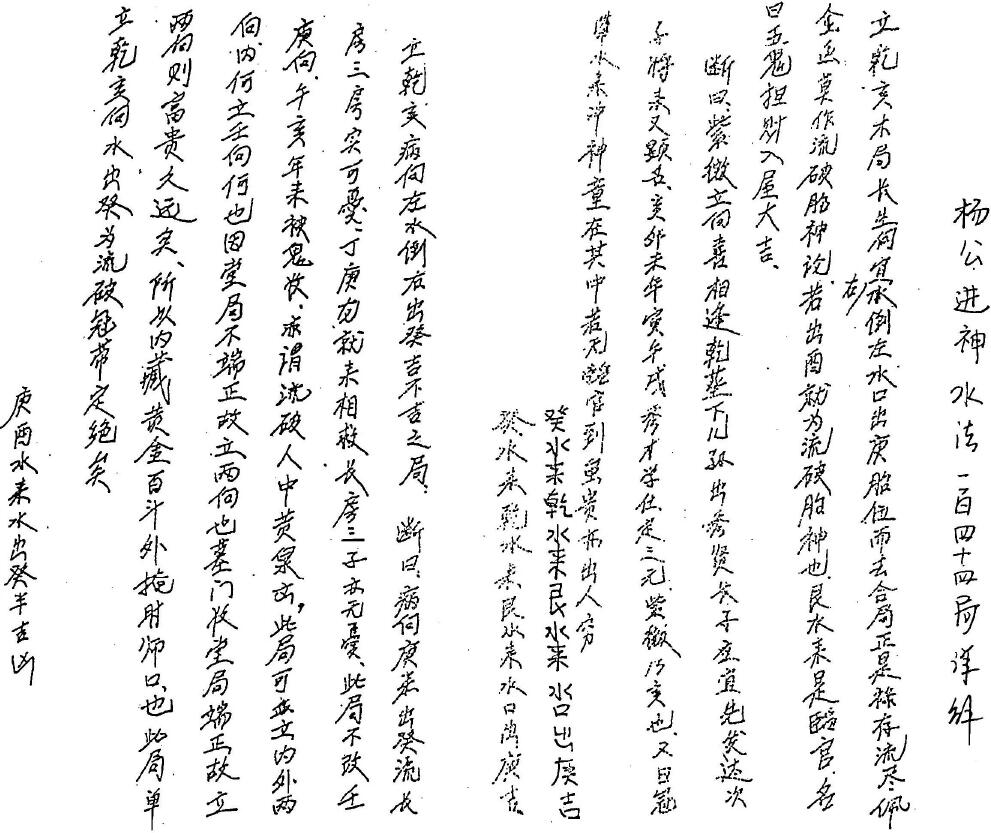 杨公进神水法一百四十四局详解
立乾亥木局长生向宜右水倒左水口出庚胎位而去合局正是禄存流尽佩
金鱼莫作流破胎神论若出酉就为流破胎神也艮水来是临官名
曰五鬼担财入屋大吉、
断曰、紫微立向喜相逢乾葬下儿孙出秀贤长子应宜先发达次
子将来又显名、亥卯未年寅午戌秀才学仕定三元、紫微乃亥也、又曰冠
带水来冲神童在其中若无临官到虽贵亦出人穷
癸水来乾水来艮水来水口出庚吉
癸水来乾水来艮水来水口出庚吉、
立乾亥病向左水倒右出癸吉不吉之局、断曰、病向庚来出癸流长
房三房实可忧、丁庚方就来相救长房三子亦无忧、此局不改壬
庚向、午亥年来被鬼收、亦谓流破人中黄泉凶，此局可立内外两
向、内何立壬向何也因堂局不端正故立两向也墓门收堂局端正故立
两向则富贵久远矣、所以内藏黄金百斗外掩时师口、也此局单
立乾亥向水出癸为流破冠带定绝矣
庚酉水来水出癸半吉凶